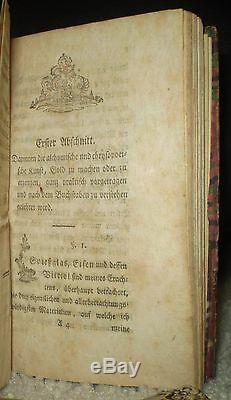 Erster Abschnitt.
Darinnen die alchymische und chrysopoeti-
sche Kunst, Gold zu machen oder zu
erzeugen, ganz praktisch vorgetragen
und nach dem Buchstaben zu verstehen
gelehret wird.
§. 1.
Spiesglas, Eisen und dessen
Vitriol sind meines Erach-
tens, überhaupt betrachtet,
die drey eigentlichen und allerbetrachtungs-
würdigsten Materien, auf welche ich
A 4 meine